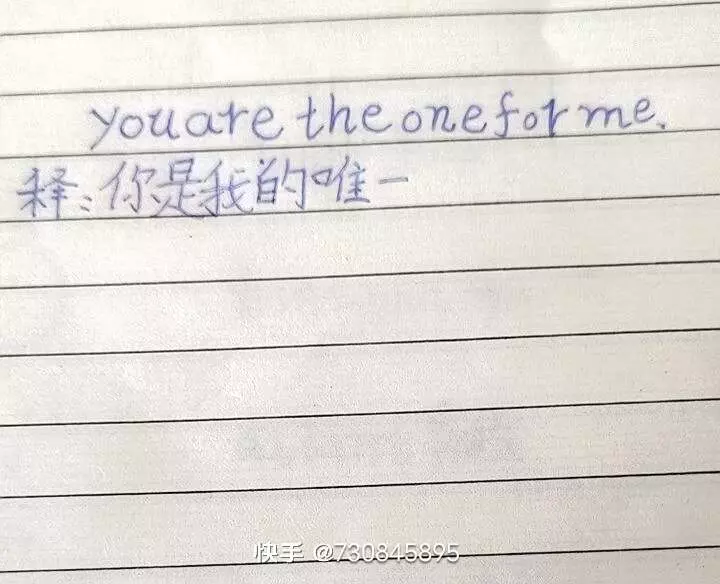 you are the one for me.
释:你是我的唯一
快手 @730845895